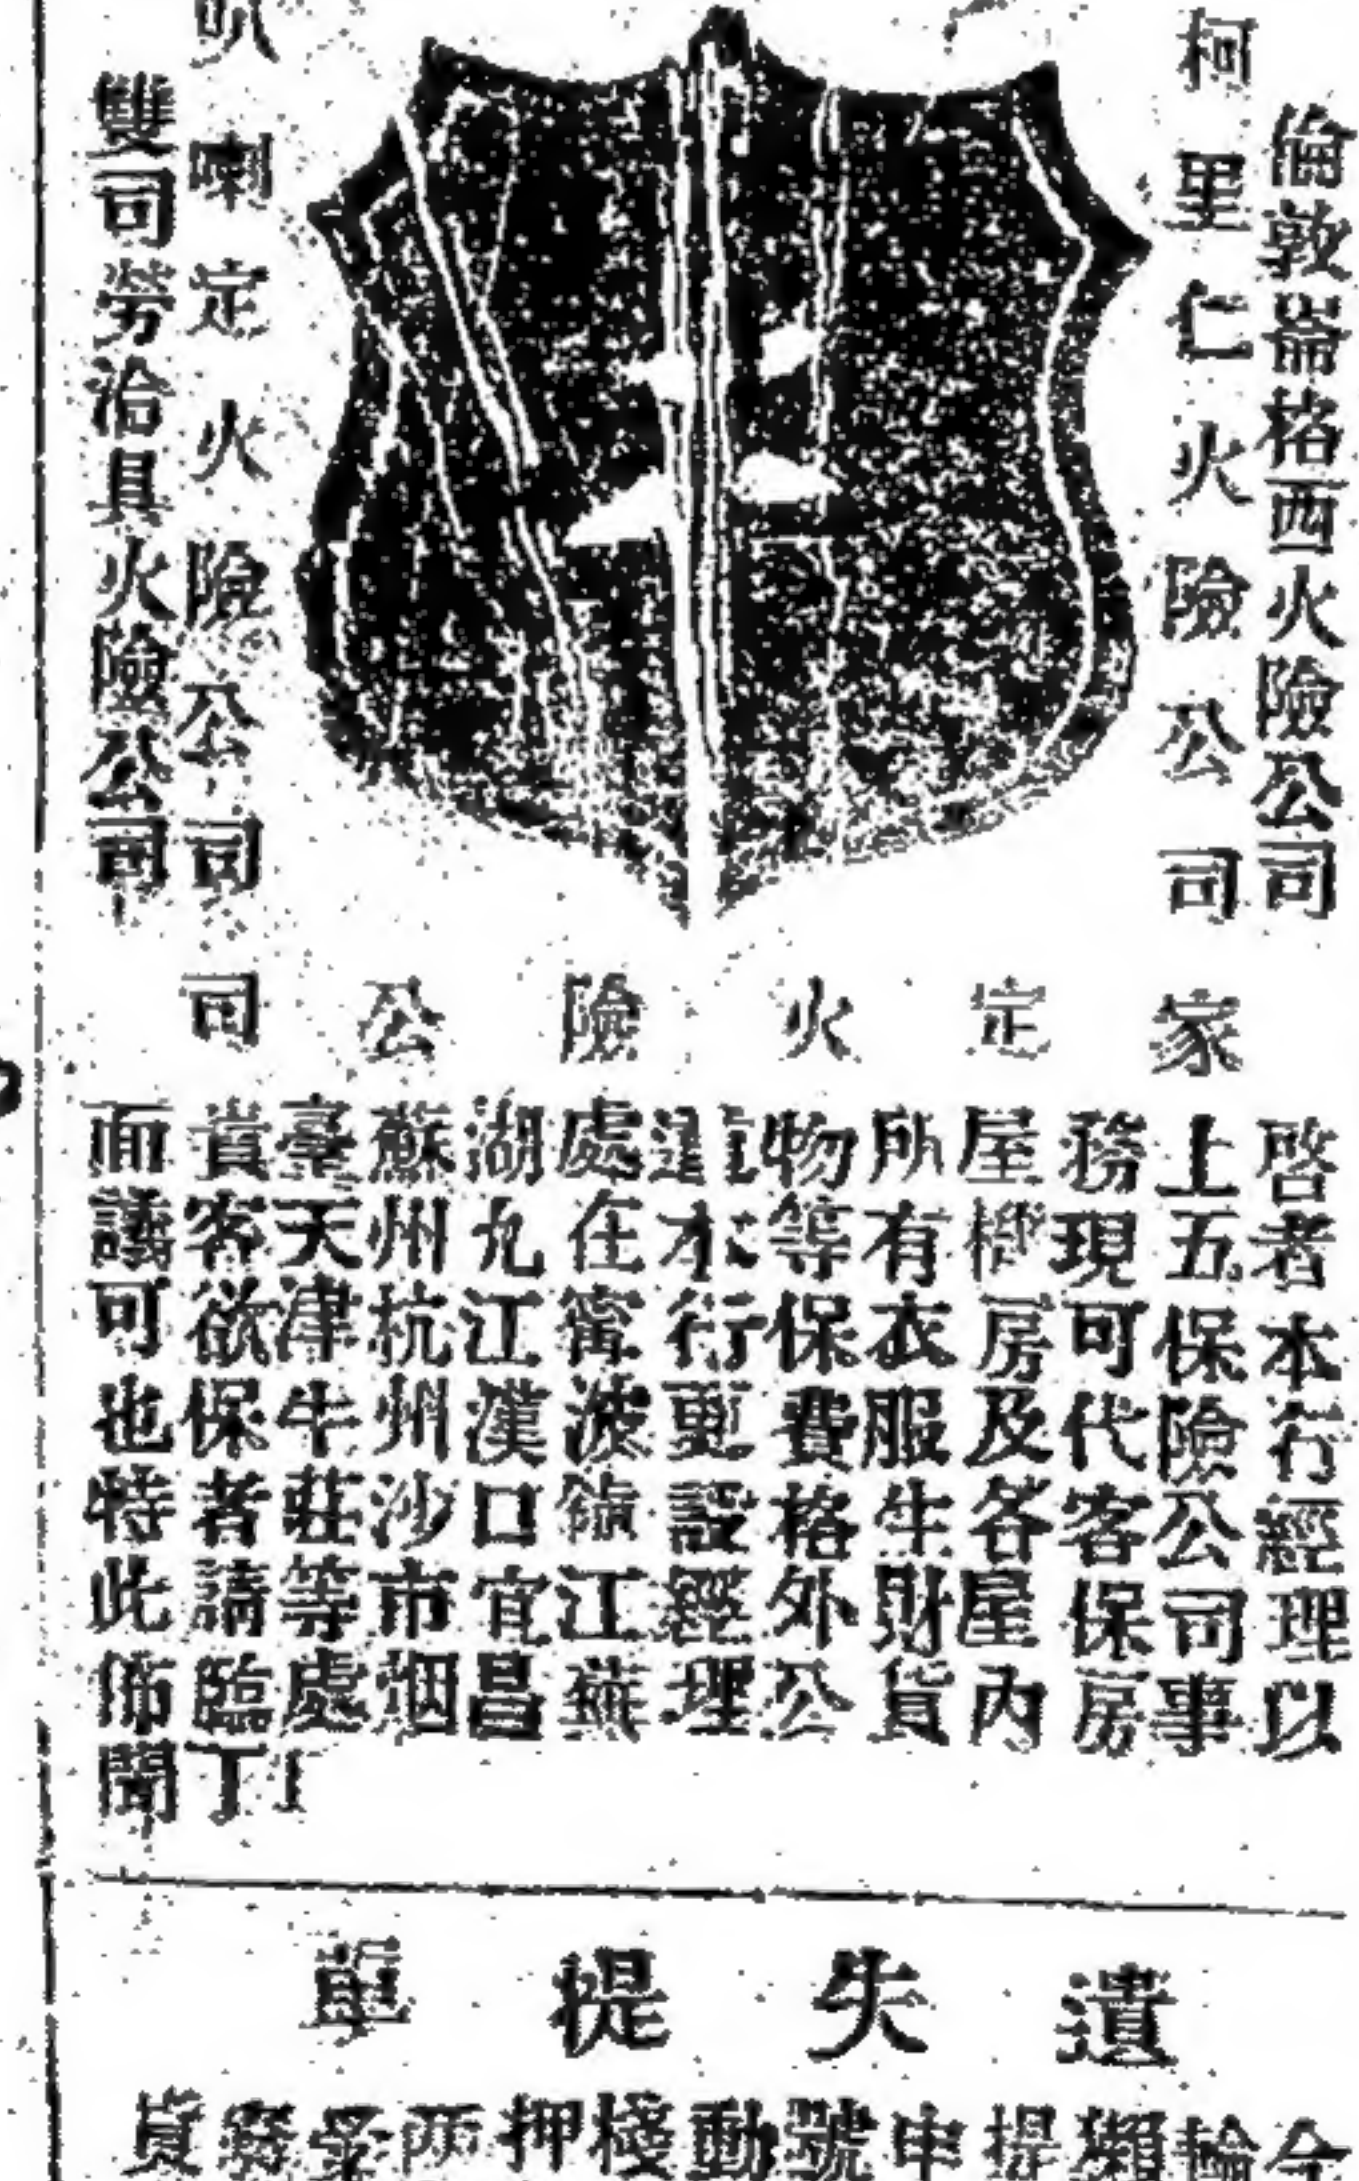 倫敦崙格西火險公司
柯里仁火險公司
喇定火險公司
雙司勞洽具火險公司
家定火險公司
啓者本行經理以
上五保險公司事
務現可代客保房
屋機房及各屋內
所有衣服生財貨
物等保費格外公
道本行更設經理
處在甯波鎮江蕪
湖九江漢口宜昌
蘇州杭州沙市烟
臺天津牛莊等處
貴客欲保者請臨
面議可也特此佈聞
遺失提單
今
輪
獺
提
申
號
動
棧
押
兩